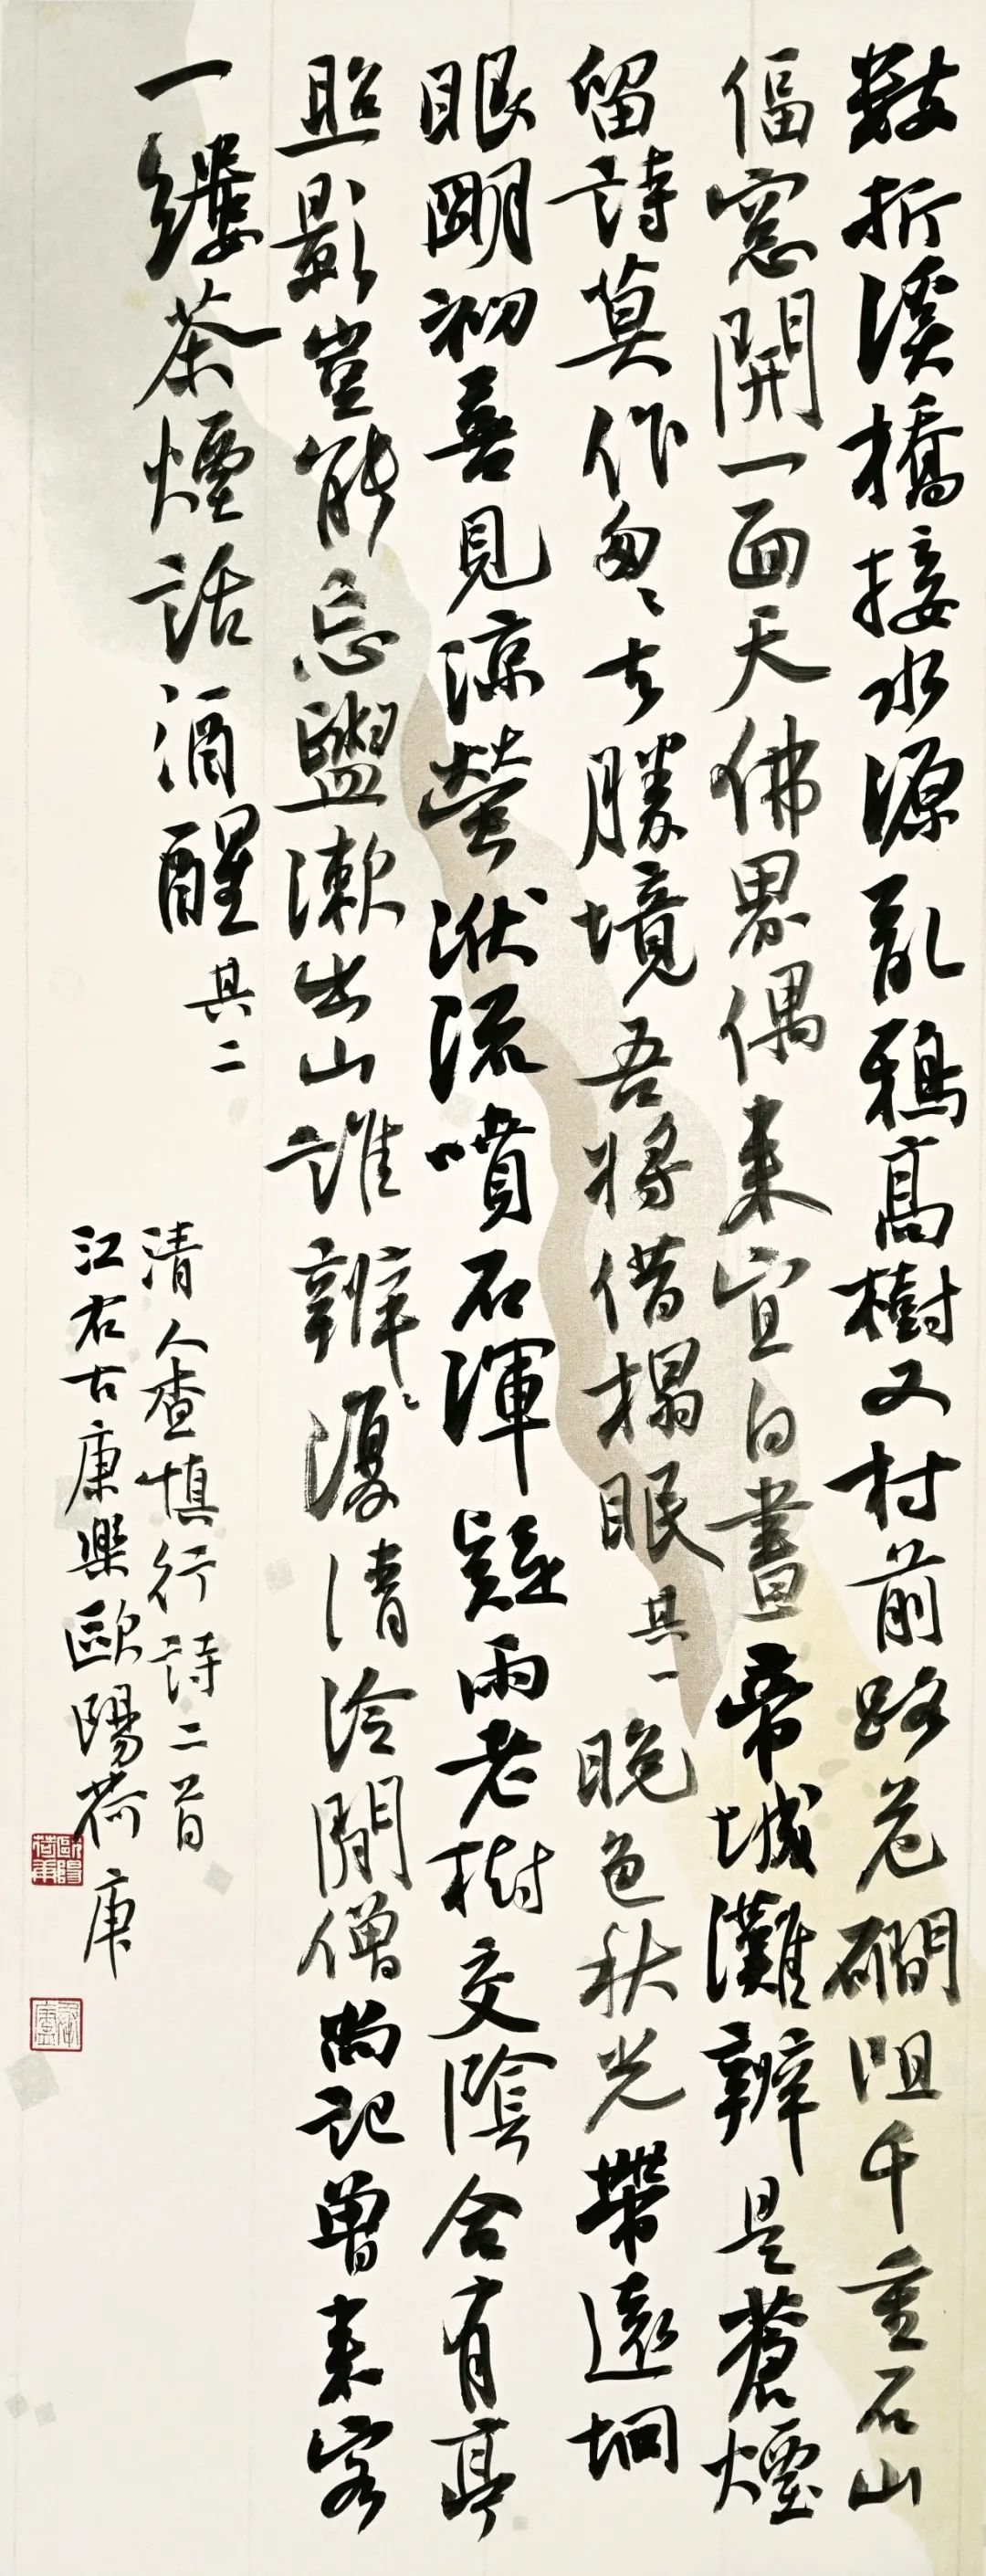 數折溪橋接水源亂鴉高樹又村前路危磵阻千重石山
偪窓開一面天佛界偶來宜白晝帝城灘辨是蒼煙
留詩莫作匆〻去勝境吾將借榻眠其一晚色秋光帶遠坰
眼明初喜見涼螢洑流噴石渾疑雨老樹交陰合有亭
照影豈能忘盥漱出山誰辨〻復清泠閒僧尚記曾來客
一縷茶煙話酒醒其二
清人查慎行詩二首
江右古康樂歐陽荷庚
歐陽荷庚